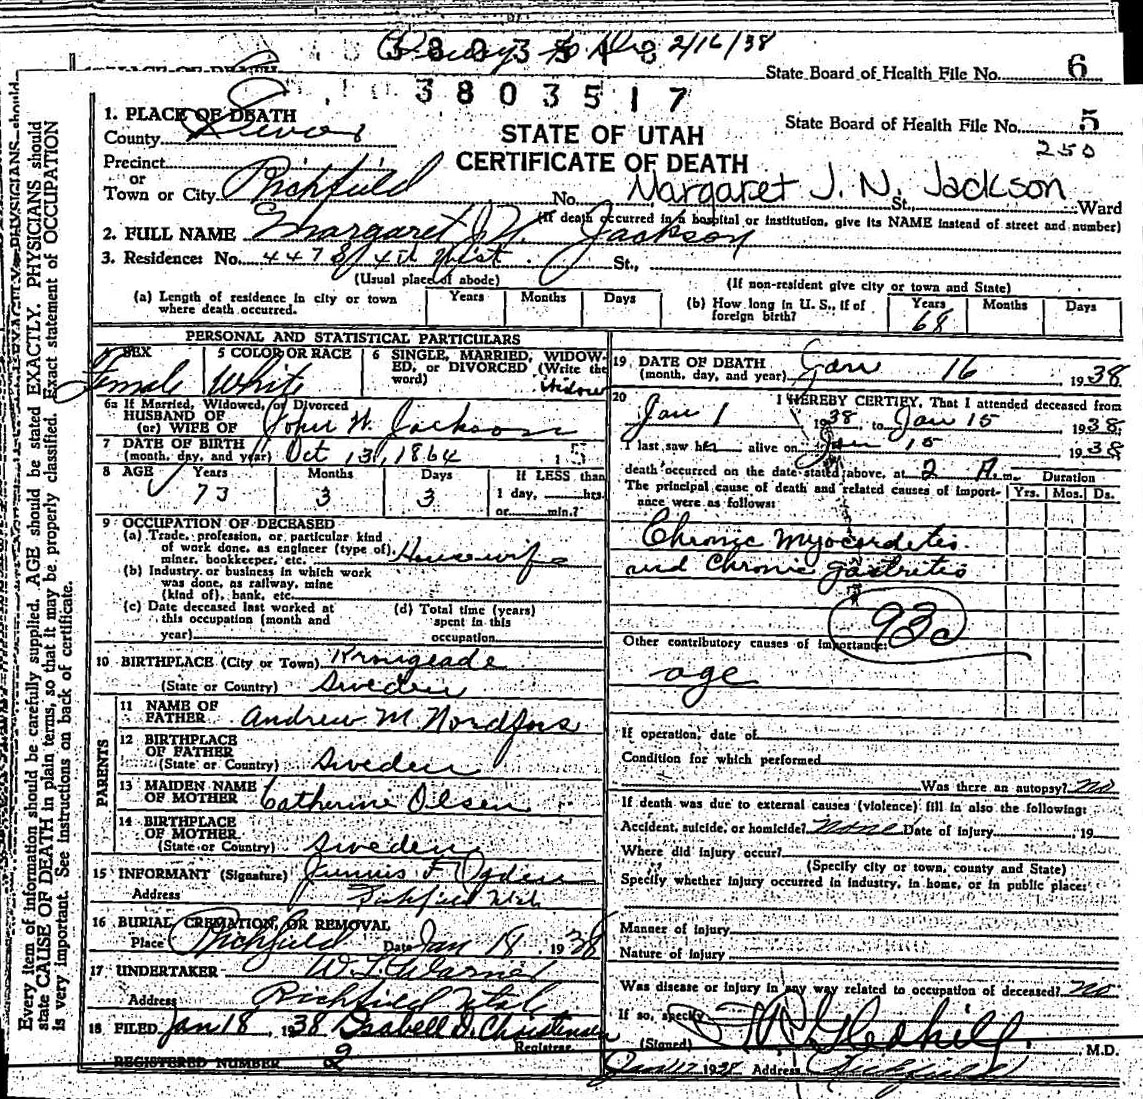 2/16/38
State Board of Health File No. 6
3803517
State Board of Health File No. 5
250
STATE OF UTAH
CERTIFICATE OF DEATH
1. PLACE OF DEATH
County Sevier
Precinct
or
Town or City Richfield No. Margaret J. N. Jackson St., Ward
(If death occurred in a hospital or institution, give its NAME instead of street and number)
2. FULL NAME Margaret J. N. Jackson
3. Residence: No. 447 So 4th West St.,
(Usual place of abode) (If non-resident give city or town and State)
(a) Length of residence in city or town where death occurred. Years Months Days
(b) How long in U. S., if of foreign birth? Years 68 Months Days
PERSONAL AND STATISTICAL PARTICULARS
4 SEX Female
5 COLOR OR RACE White
6 SINGLE, MARRIED, WIDOWED, OR DIVORCED (Write the word) Widow
6a If Married, Widowed, or Divorced
HUSBAND OF
(or) WIFE OF John W. Jackson
7 DATE OF BIRTH
(month, day, and year) Oct 13, 1864
8 AGE Years 73 Months 3 Days 3 If LESS than
1 day, hrs.
or min.?
9 OCCUPATION OF DECEASED
(a) Trade, profession, or particular kind
of work done, as engineer (type of),
miner, bookkeeper, etc. Housewife
(b) Industry or business in which work
was done, as railway, mine
(kind of), bank, etc.
(c) Date deceased last worked at
this occupation (month and
year)
(d) Total time (years)
spent in this
occupation
10 BIRTHPLACE (City or Town)
(State or Country) Sweden
PARENTS
11 NAME OF
FATHER Andrew M. Nordfors
12 BIRTHPLACE
OF FATHER
(State or Country) Sweden
13 MAIDEN NAME
OF MOTHER Catherine Olsen
14 BIRTHPLACE
OF MOTHER
(State or Country) Sweden
15 INFORMANT (Signature) Junius F Ogden
Address Richfield Utah
16 BURIAL, CREMATION, OR REMOVAL
Place Richfield Date Jan 18, 1938
17 UNDERTAKER W. L. Warner
Address Richfield Utah
18 FILED Jan 18, 1938 Isabell D. Christensen
Registrar
REGISTERED NUMBER 2
19 DATE OF DEATH
(month, day, and year) Jan 16 1938
20 I HEREBY CERTIFY, That I attended deceased from
Jan 1 1938, to Jan 15 1938
I last saw her alive on Jan 15 1938
death occurred on the date stated above, at 2 A. m.
The principal cause of death and related causes of importance were as follows:
Duration
Yrs. Mos. Ds.
Chronic myocardetis
and chronic gastritis
93c
Other contributory causes of importance:
age
If operation, date of
Condition for which performed
Was there an autopsy? no
If death was due to external causes (violence) fill in also the following:
Accident, suicide, or homicide? none Date of injury 19
Where did injury occur?
(Specify city or town, county and State)
Specify whether injury occurred in industry, in home, or in public place:
Manner of injury
Nature of injury
Was disease or injury in any way related to occupation of deceased? no
If so, specify
(Signed) Gledhill, M.D.
Jan 17 1938 Address Richfield
Every item of information should be carefully supplied. AGE should be stated EXACTLY. PHYSICIANS should
state CAUSE OF DEATH in plain terms, so that it may be properly classified. Exact statement of OCCUPATION
is very important. See instructions on back of certificate.